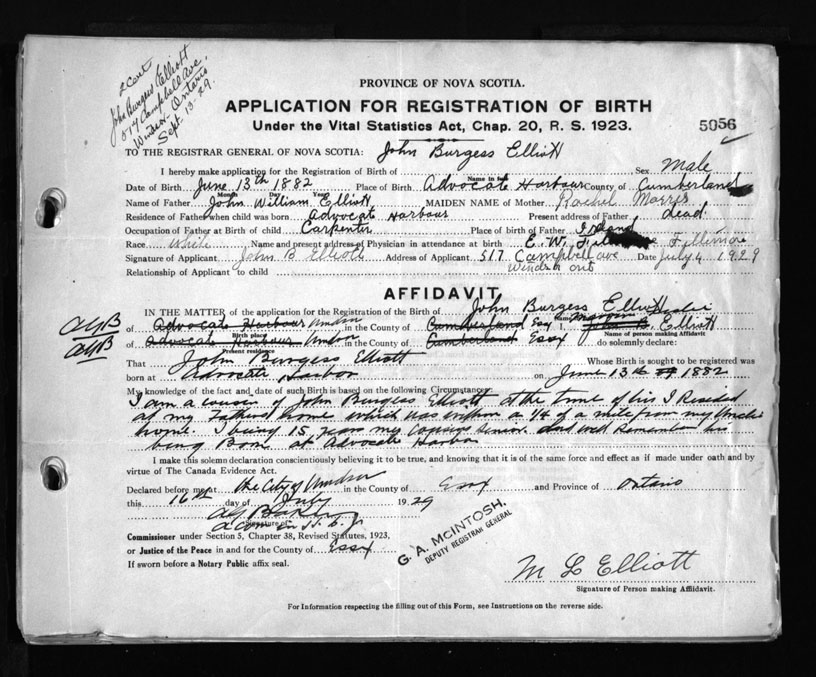 1 Cert
John Burgess Elliott
517 Campbell Ave.
Windsor, Ontario
Sept. 13-29.
PROVINCE OF NOVA SCOTIA.
APPLICATION FOR REGISTRATION OF BIRTH
Under the Vital Statistics Act, Chap. 20, R. S. 1923.
5056
TO THE REGISTRAR GENERAL OF NOVA SCOTIA:
I hereby make application for the Registration of Birth of John Burgess Elliott Sex Male
Name in full
Date of Birth June 13th 1882 Place of Birth Advocate Harbour County of Cumberland
Month Day Year
Name of Father John William Elliott MAIDEN NAME of Mother Rachel Morris
Residence of Father when child was born Advocate Harbour Present address of Father dead
Occupation of Father at Birth of child Carpenter Place of birth of Father Ireland
Race White Name and present address of Physician in attendance at birth E. W. Fillimore
Signature of Applicant John B Elliott Address of Applicant 517 Campbell ave Date July 4 1929
Windsor ont
Relationship of Applicant to child
AFFIDAVIT
IN THE MATTER of the application for the Registration of the Birth of John Burgess Elliott
AGB of Advocate Harbour Windsor in the County of Cumberland Essx I John B. Elliott
Birth place Name of Person making Affidavit
AGB of Advocate Harbour Windsor in the County of Cumberland Essx do solemnly declare:
Present residence
That John Burgess Elliott Whose Birth is sought to be registered was
born at Advocate Harbor on June 13th 1882
My knowledge of the fact and date of such Birth is based on the following Circumstances:
I am a cousin of John Burgess Elliott at the time of his I Resided
at my Fathers home which was within a 1/4 of a mile from my Uncles
home. I being 15 years my Cousins senior and well Remember his
being Born at Advocate Harbor
I make this solemn declaration conscientiously believing it to be true, and knowing that it is of the same force and effect as if made under oath and by
virtue of The Canada Evidence Act.
Declared before me at the City of Windsor in the County of Essx and Province of Ontario
this 16th day of July 1929
AG Baker
Signature of
Commissioner under Section 5, Chapter 38, Revised Statutes, 1923,
or Justice of the Peace in and for the County of Essx
If sworn before a Notary Public affix seal.
G. A. McINTOSH,
DEPUTY REGISTRAR GENERAL
M L Elliott
Signature of Person making Affidavit.
For Information respecting the filling out of this Form, see Instructions on the reverse side.